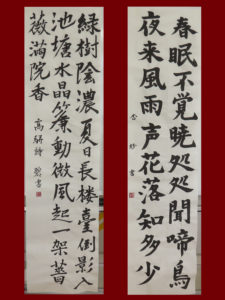 春眠不覚暁処処聞啼鳥
夜来風雨声花落知多少
書
緑樹陰濃夏日長楼臺倒影入
池塘水晶簾動微風起一架薔
薇満院香
高駢詩
書